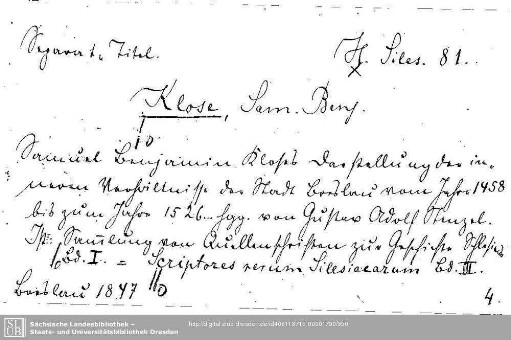 Separat-Titel.
H. Siles. 81.
Klose, Sam. Benj.
Samuel Benjamin Kloses Darstellung der in-
neren Verhältnisse der Stadt Breslau vom Jahre 1458
bis zum Jahre 1526. Hgg. von Gustav Adolf Stenzel.
Sammlung von Quellenschriften zur Geschichte Schlesiens
Bd. I. = Scriptores rerum Silesiacarum Bd. III.
Breslau 1847
4.
Sächsische Landesbibliothek –
Staats- und Universitätsbibliothek Dresden